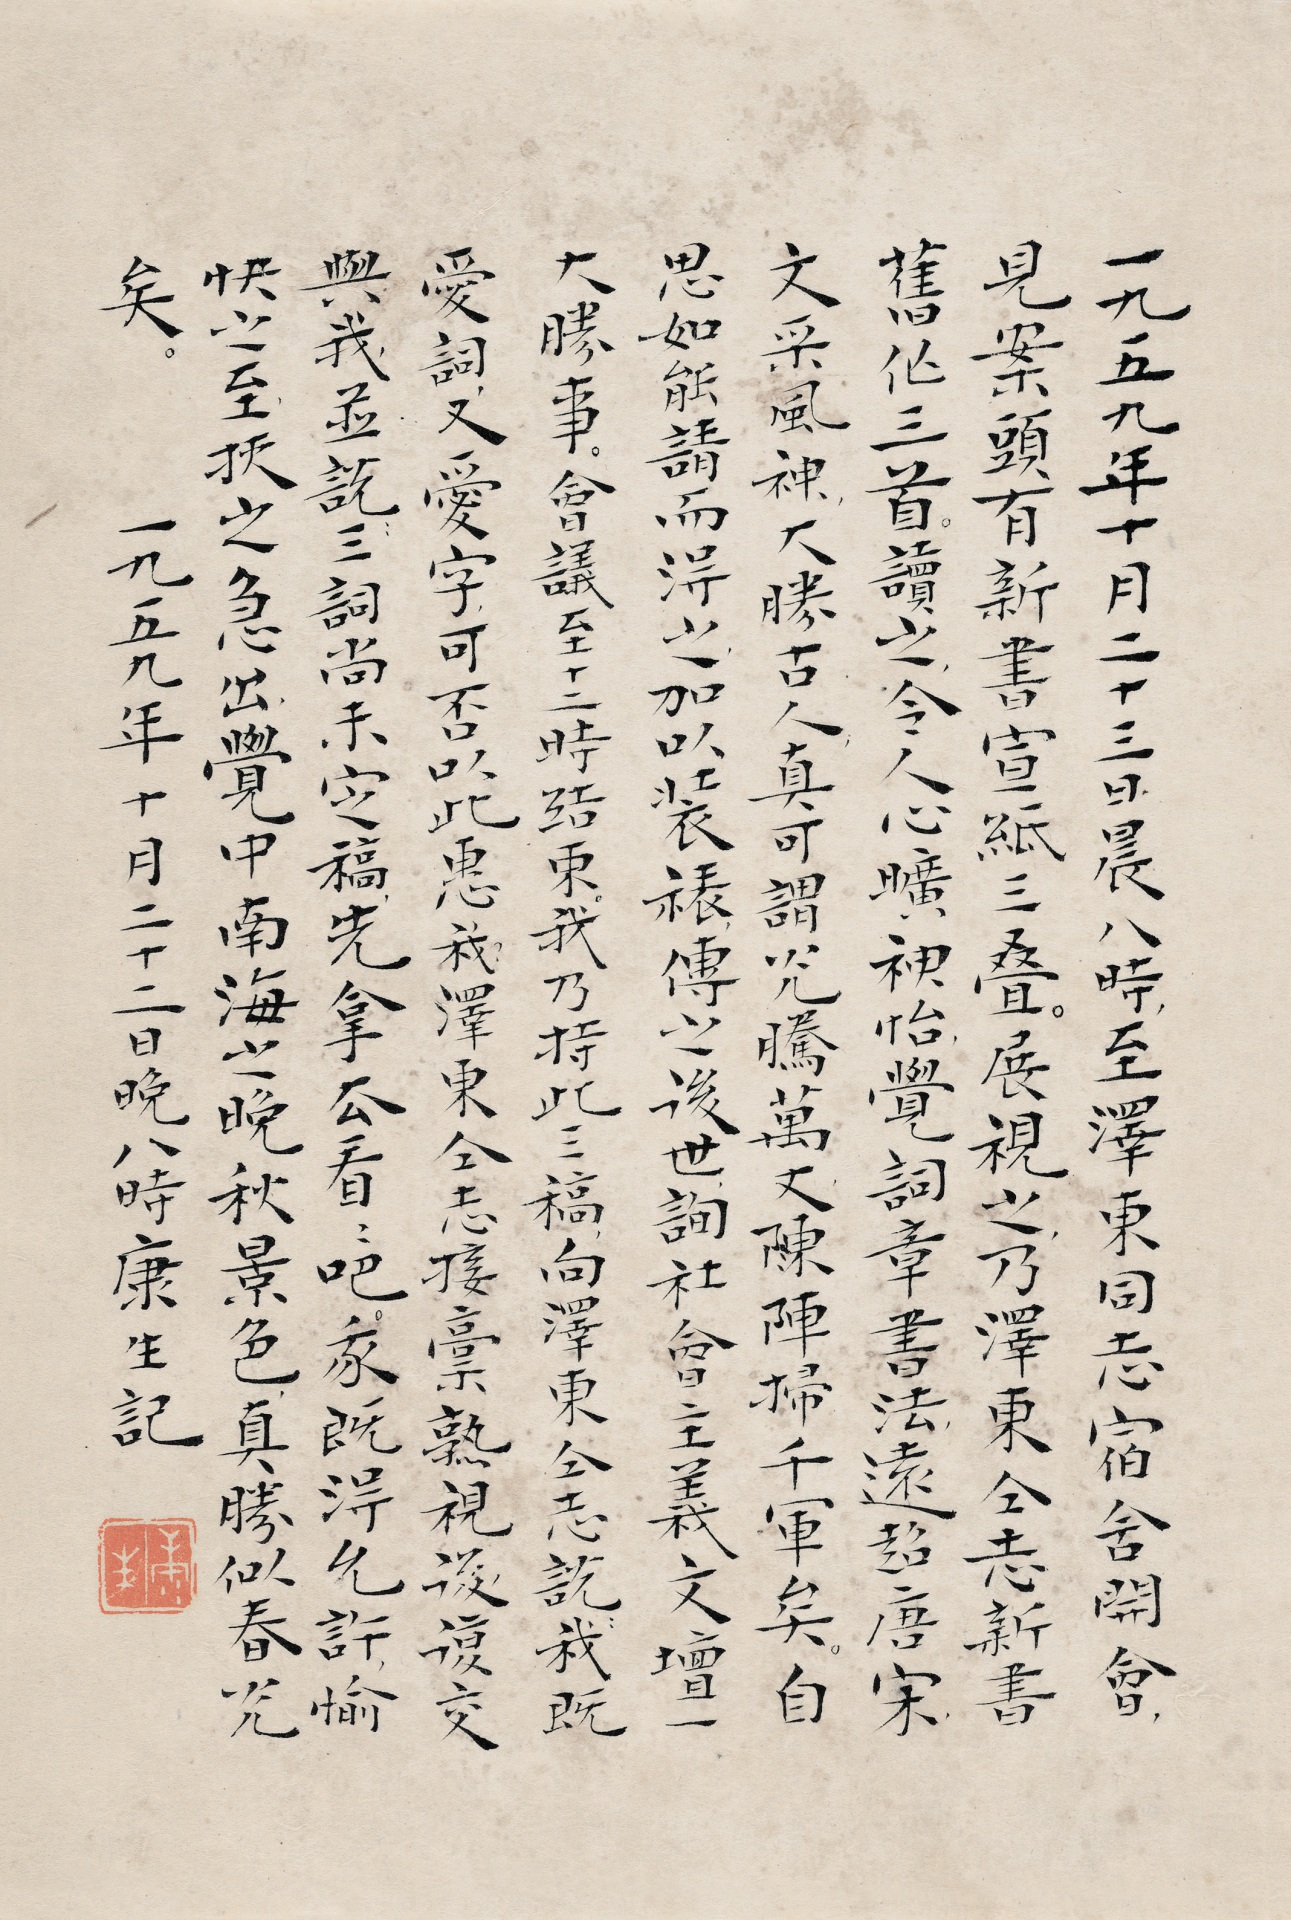 一九五九年十月二十三日晨八時，至澤東同志宿舍開會，
見案頭有新書宣紙三叠。展視之，乃澤東仝志新書
舊作三首。讀之，令人心曠神怡，覺詞章書法，遠超唐宋，
文采風神，大勝古人，真可謂光騰萬丈，陳陣掃千軍矣。自
思如能請而淂之，加以装裱，傳之後世，詢社會主義文壇一
大勝事。會議至十二時结束。我乃持此三稿，向澤東仝志説：我既
愛詞，又愛字，可否以此惠我？澤東仝志接稾熟視後，複交
與我，並説：三詞尚未定稿，先拿厺看看吧。我既淂允許，愉
快之至，挾之急出，覺中南海之晚秋景色，真勝似春光
矣。
一九五九年十月二十二日晚八時康生記
康生